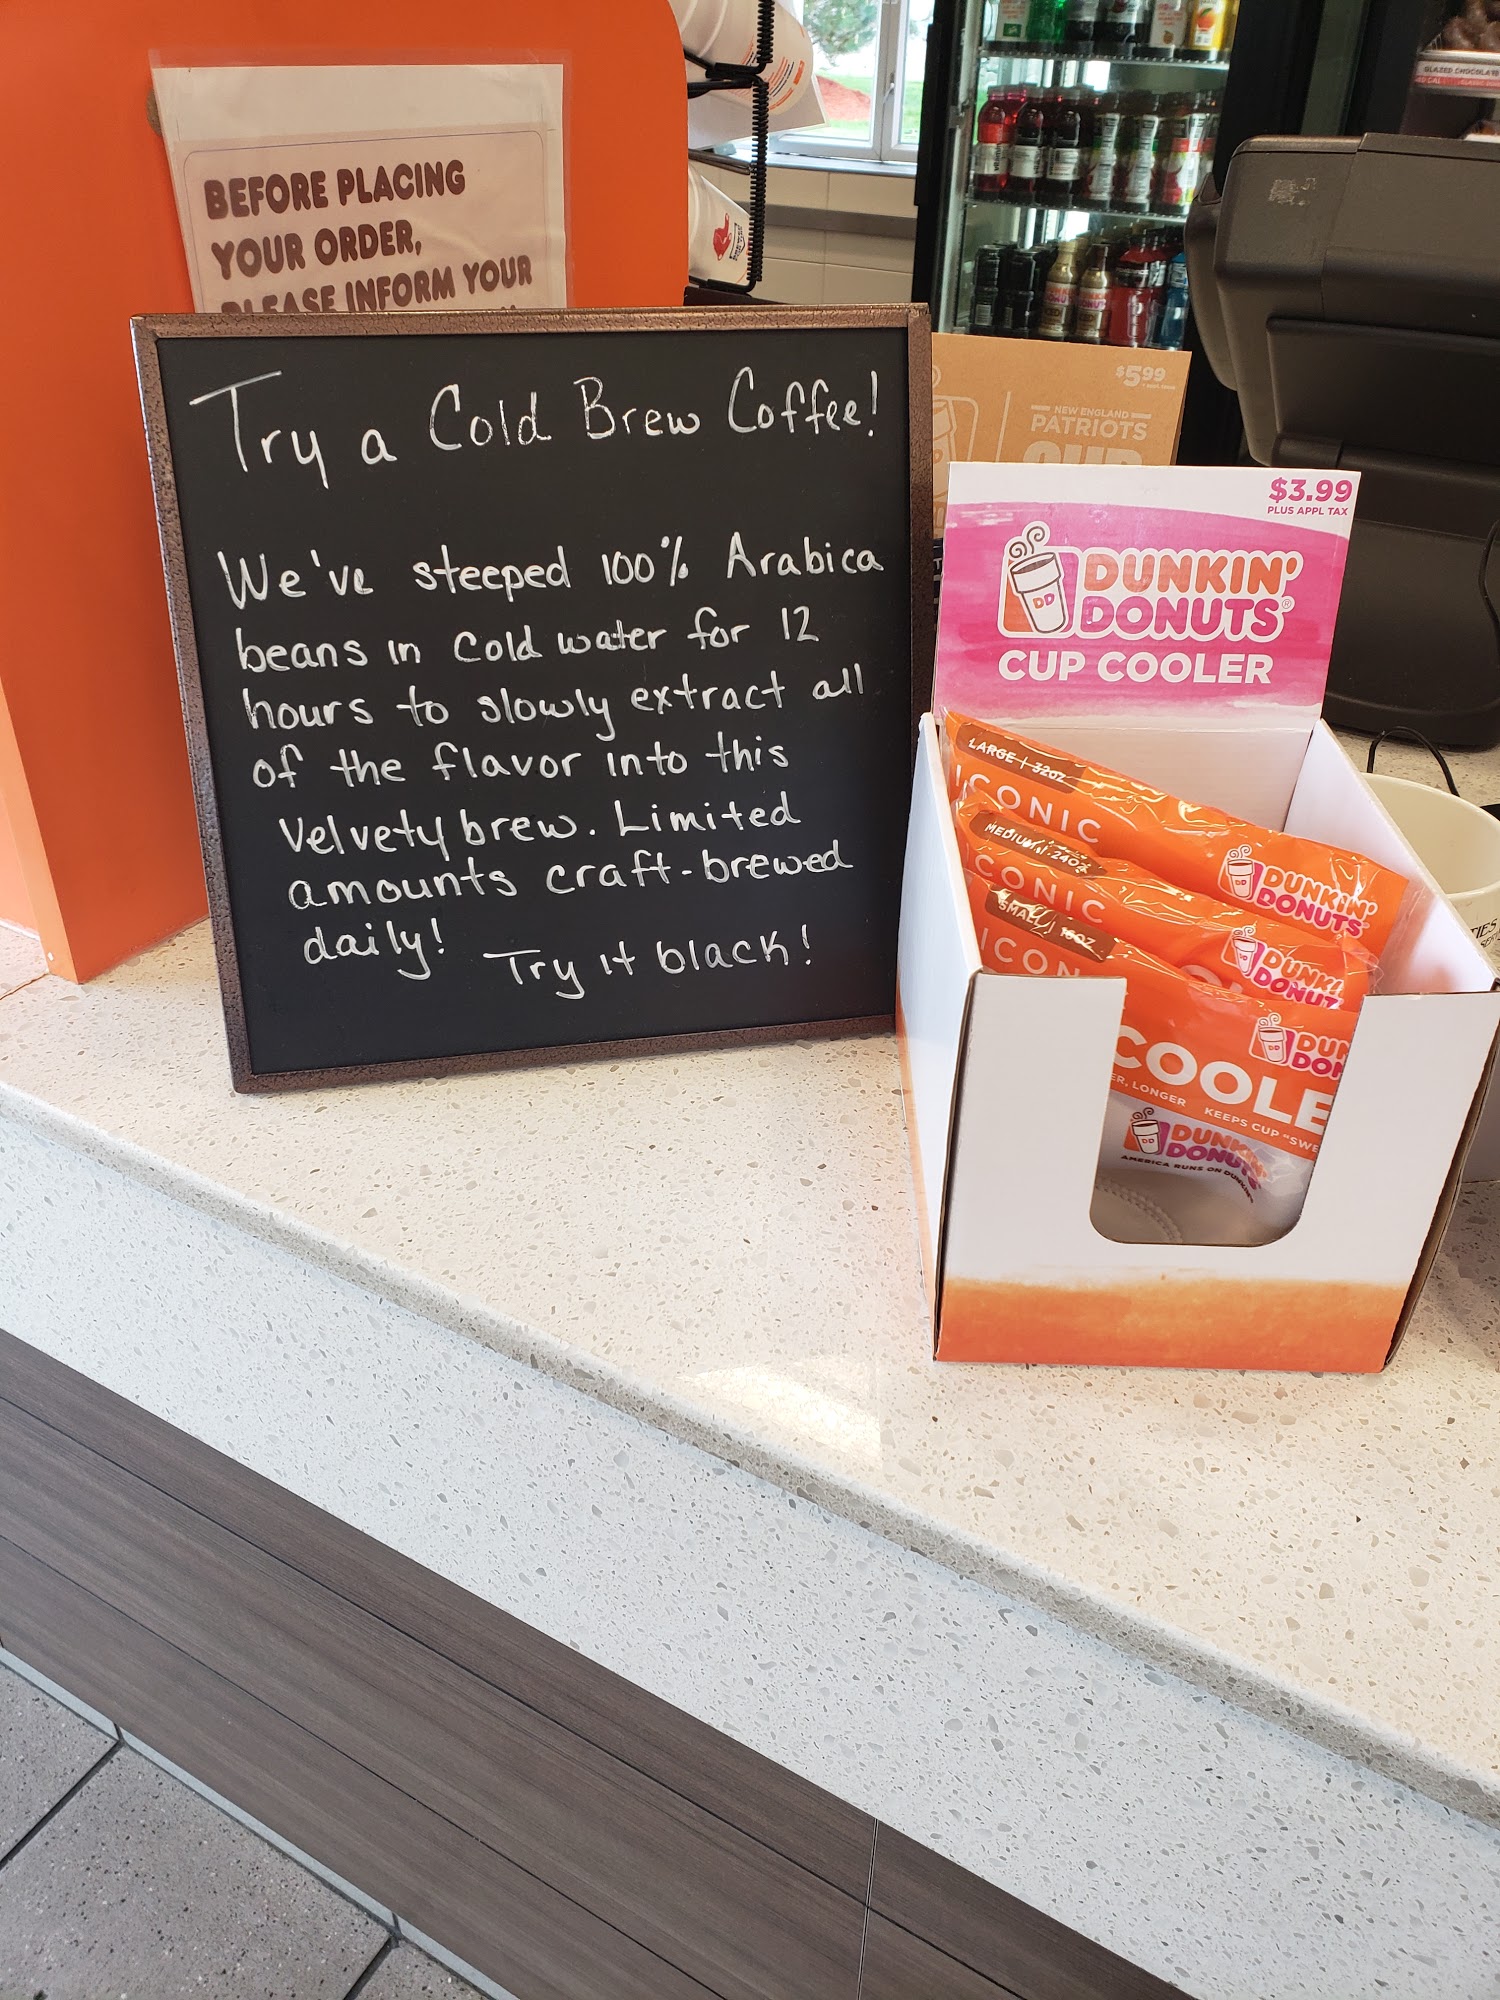 BEFORE PLACING
YOUR ORDER,
PLEASE INFORM YOUR
Try a Cold Brew Coffee!
We've steeped 100% Arabica
beans in cold water for 12
hours to slowly extract all
of the flavor into this
velvety brew. Limited
amounts craft-brewed
daily!
Try it black!
GLAZED CHOCOLATE
$5.99
NEW ENGLAND
PATRIOTS
CUP
$3.99
PLUS APPL TAX
DUNKIN'
DONUTS®
DD
CUP COOLER
LARGE | 32OZ
ICONIC
DUNKIN'
DONUTS
MEDIUM | 24OZ
ICONIC
DUNKI
DONUT
SMALL | 16OZ
ICON
DUN
DON
COOLE
ER, LONGER KEEPS CUP "SWE
DUNKIN'
DONUTS
AMERICA RUNS ON DUNKIN'
TIES